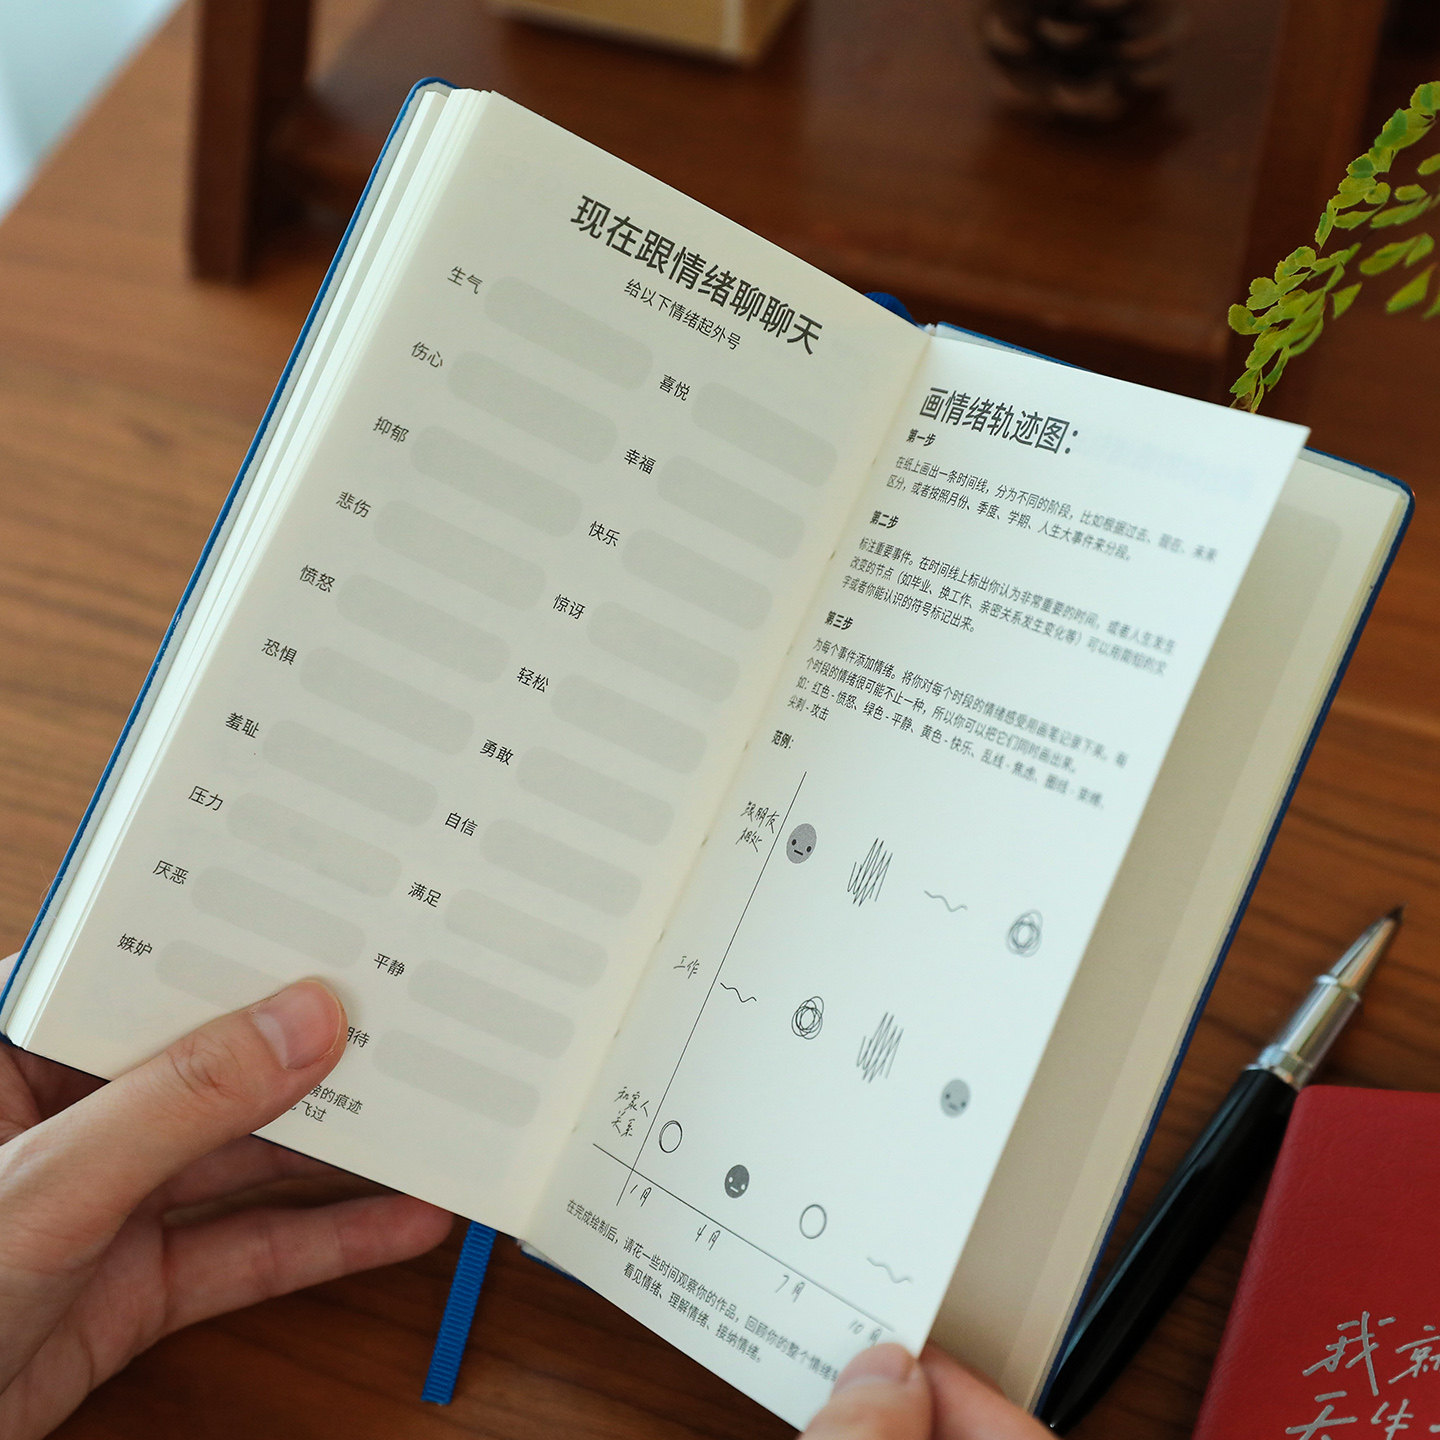 现在跟情绪聊聊天
给以下情绪起外号
生气
喜悦
伤心
幸福
抑郁
快乐
悲伤
惊讶
愤怒
轻松
恐惧
勇敢
羞耻
自信
压力
满足
厌恶
平静
嫉妒
期待
的痕迹
飞过
画情绪轨迹图：
第一步
在纸上画出一条时间线，分为不同的阶段，比如根据过去、现在、未来
区分，或者按照月份、季度、学期、人生大事件来分段。
第二步
标注重要事件。在时间线上标出你认为非常重要的时间，或者人生发生
改变的节点（如毕业、换工作、亲密关系发生变化等）可以用简短的文
字或者你能认识的符号标记出来。
第三步
为每个事件添加情绪。将你对每个时段的情绪感受用画笔记录下来。每
个时段的情绪很可能不止一种，所以你可以把它们同时画出来。
如：红色 - 愤怒、绿色 - 平静、黄色 - 快乐、乱线 - 焦虑、圈线 -
尖刺 - 攻击
范例：
跟朋友
相处
工作
和家人
关系
1月
4月
7月
10月
在完成绘制后，请花一些时间观察你的作品，回顾你的整个情绪
看见情绪、理解情绪、接纳情绪。
我就
天生